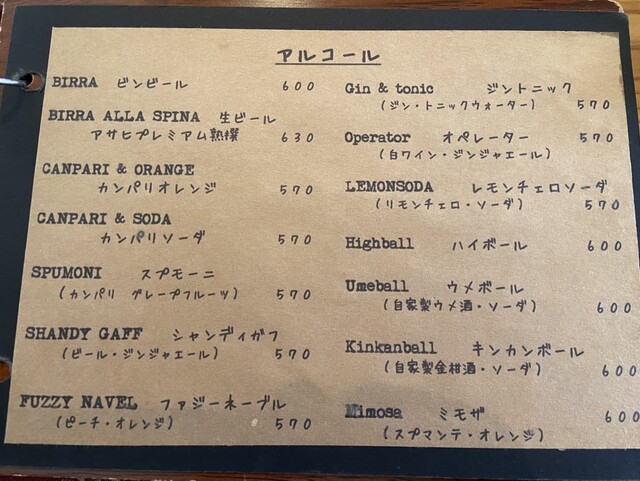 アルコール
BIRRA ビンビール 600
BIRRA ALLA SPINA 生ビール
アサヒプレミアム熟撰 630
CANPARI & ORANGE
カンパリオレンジ 570
CANPARI & SODA
カンパリソーダ 570
SPUMONI スプモーニ
(カンパリ グレープフルーツ) 570
SHANDY GAFF シャンディガフ
(ビール・ジンジャエール) 570
FUZZY NAVEL ファジーネーブル
(ピーチ・オレンジ) 570
Gin & tonic ジントニック
(ジン・トニックウォーター) 570
Operator オペレーター 570
(白ワイン・ジンジャエール)
LEMONSODA レモンチェロソーダ
(リモンチェロ・ソーダ) 570
Highball ハイボール 600
Umeball ウメボール
(自家製ウメ酒・ソーダ) 600
Kinkanball キンカンボール
(自家製金柑酒・ソーダ) 600
Mimosa ミモザ 600
(スプマンテ・オレンジ)